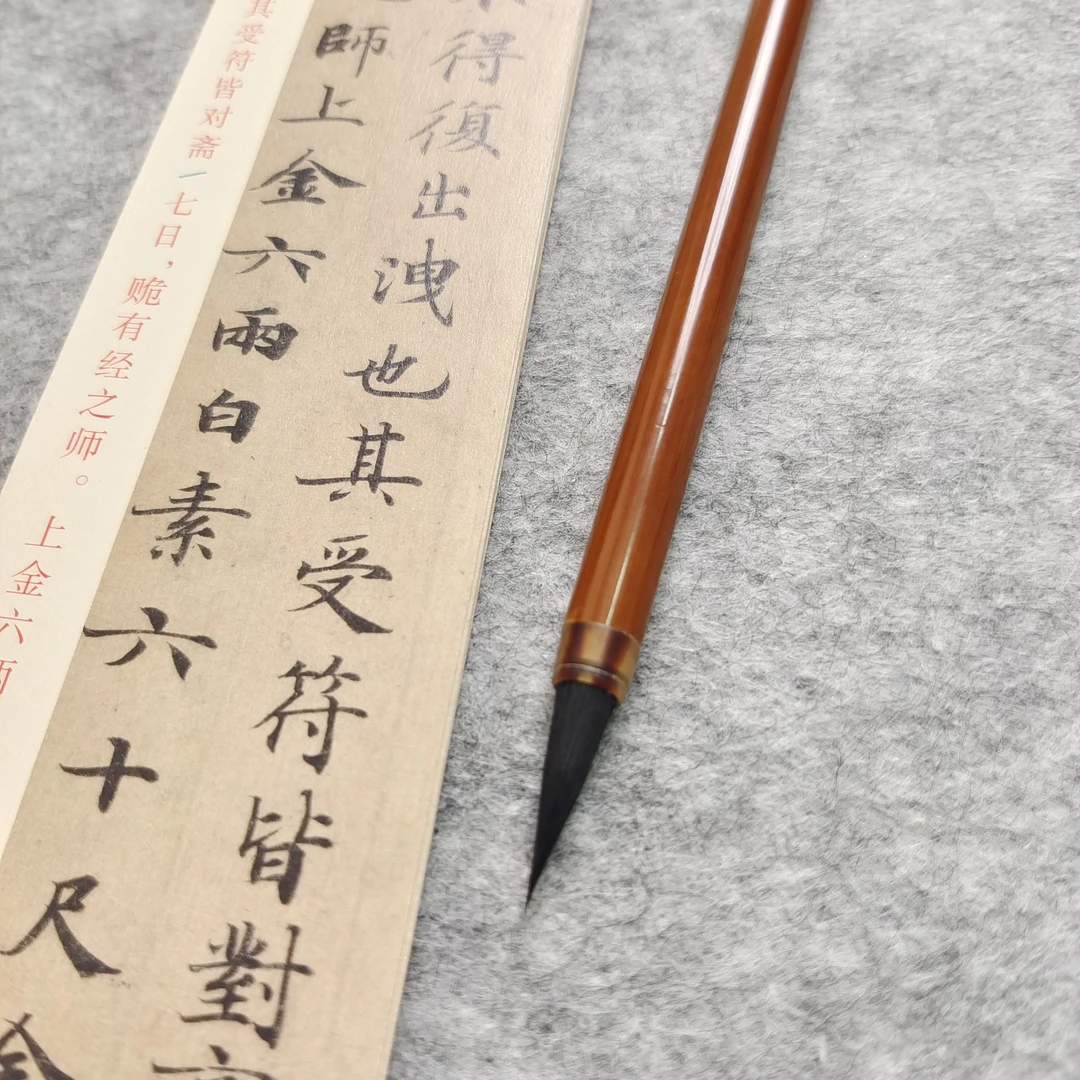 得復出洩也其受符皆對
師上金六兩白素六十尺金
其受符皆对斋/七日，有经之师。上金六两